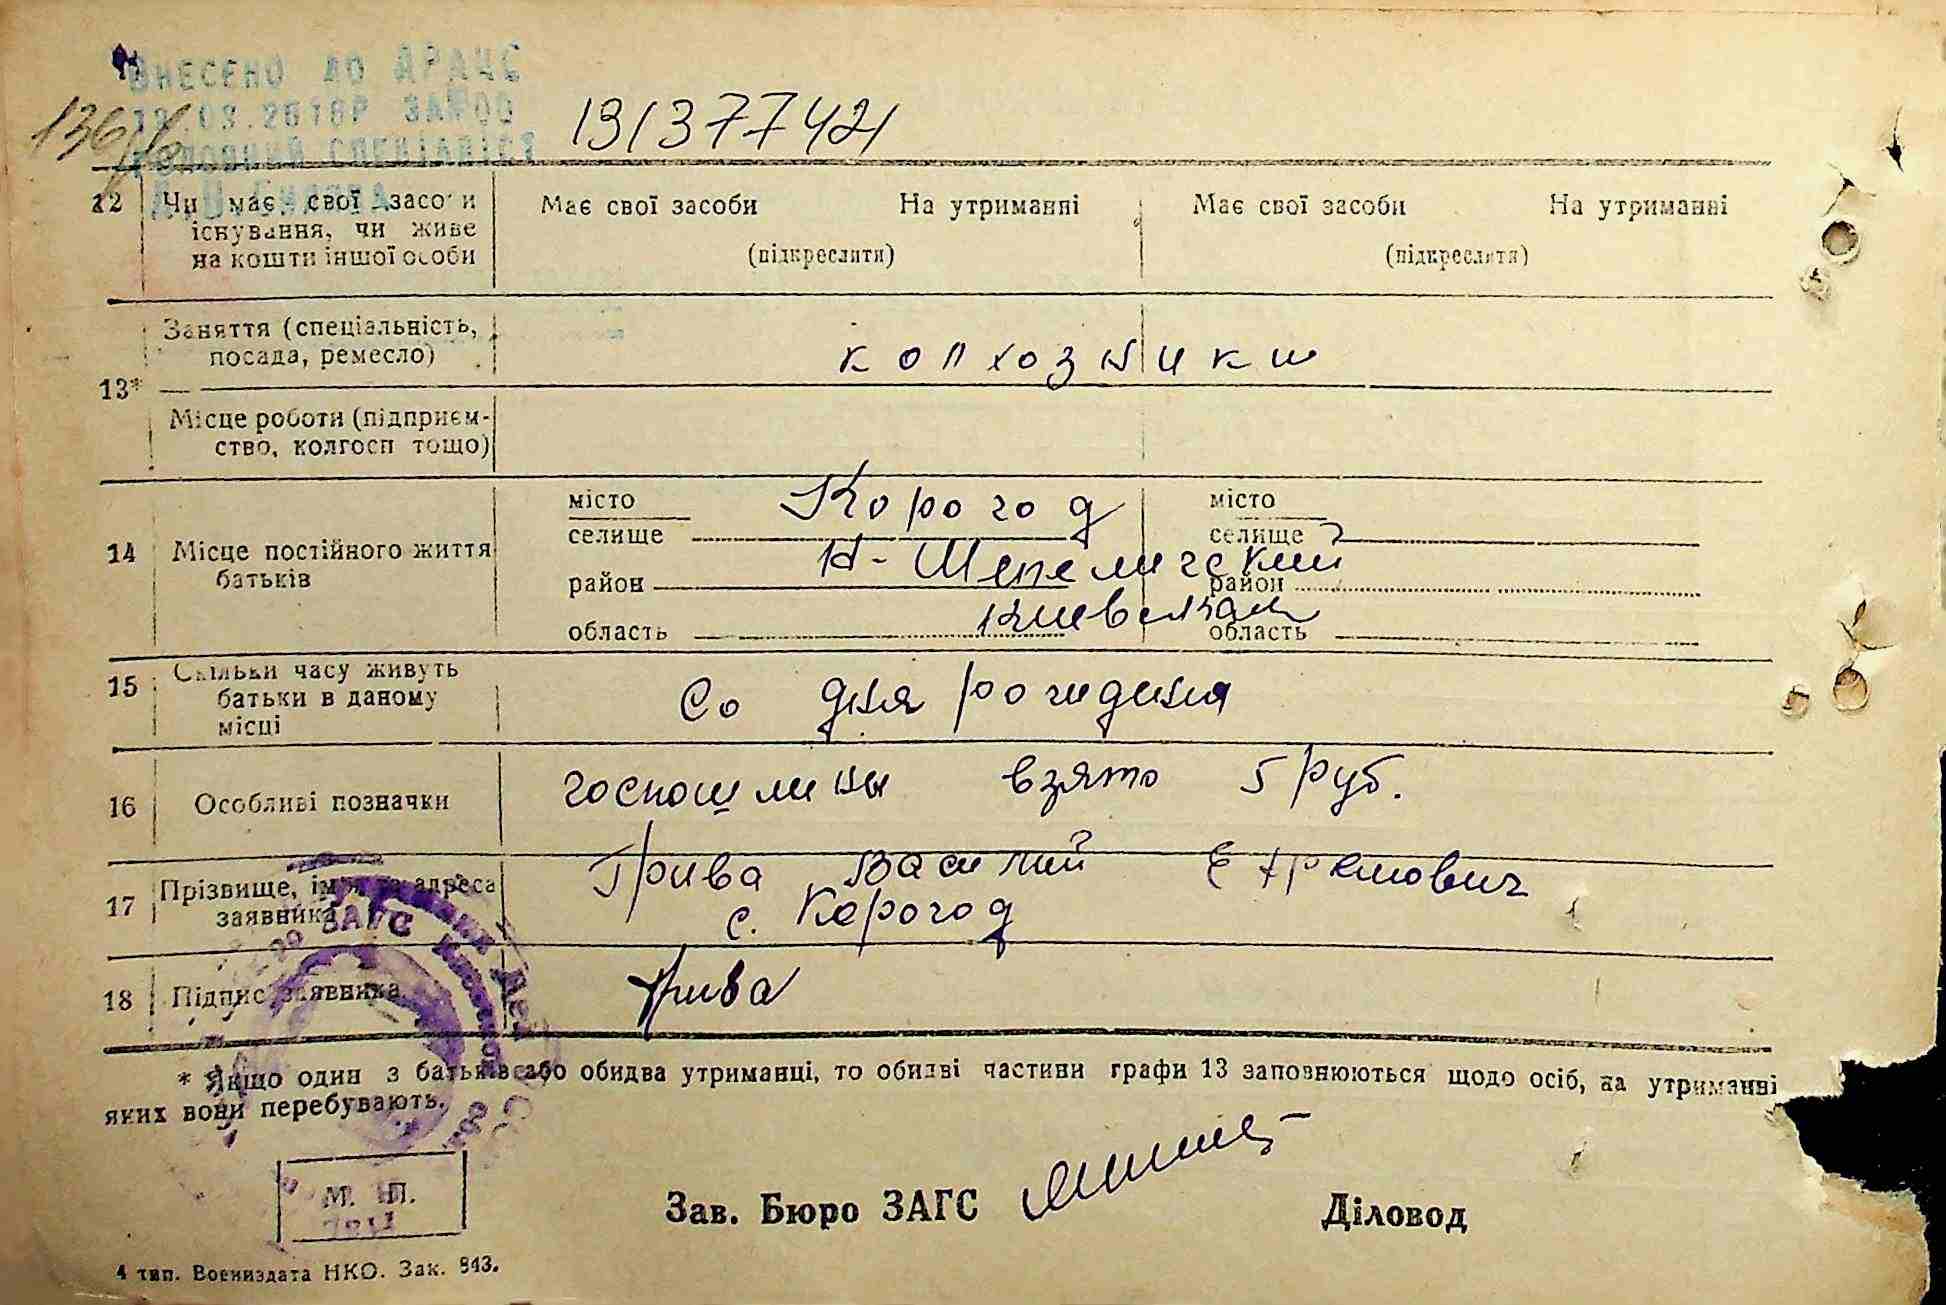 ВНЕСЕНО ДО ДРАЦС
.03.2018Р
ГОЛОВНИЙ СПЕЦІАЛІСТ
131377421
12 Чи має свої засоби існування, чи живе на кошти іншої особи
Має свої засоби На утриманні Має свої засоби На утриманні
(підкреслити) (підкреслити)
13*
Заняття (спеціальність, посада, ремесло)
колхозники
Місце роботи (підприєм-
ство, колгосп тощо)
14 Місце постійного життя
батьків
місто Корогод місто
селище селище
район Н-Шепеличский район
область Киевская область
15 Скільки часу живуть
батьки в даному
місці
Со дня рождения
16 Особливі позначки
госпошлины взято 5 руб.
17 Прізвище, ім'я та адреса
заявника
Грива Василий Ефремович
с. Корогод
18 Підпис заявника
Грива
* Якщо один з батьків або обидва утриманці, то обидві частини графи 13 заповнюються щодо осіб, на утриманні
яких вони перебувають.
М. П.
Зав. Бюро ЗАГС Діловод
4 тип. Воениздата НКО. Зак. 843.